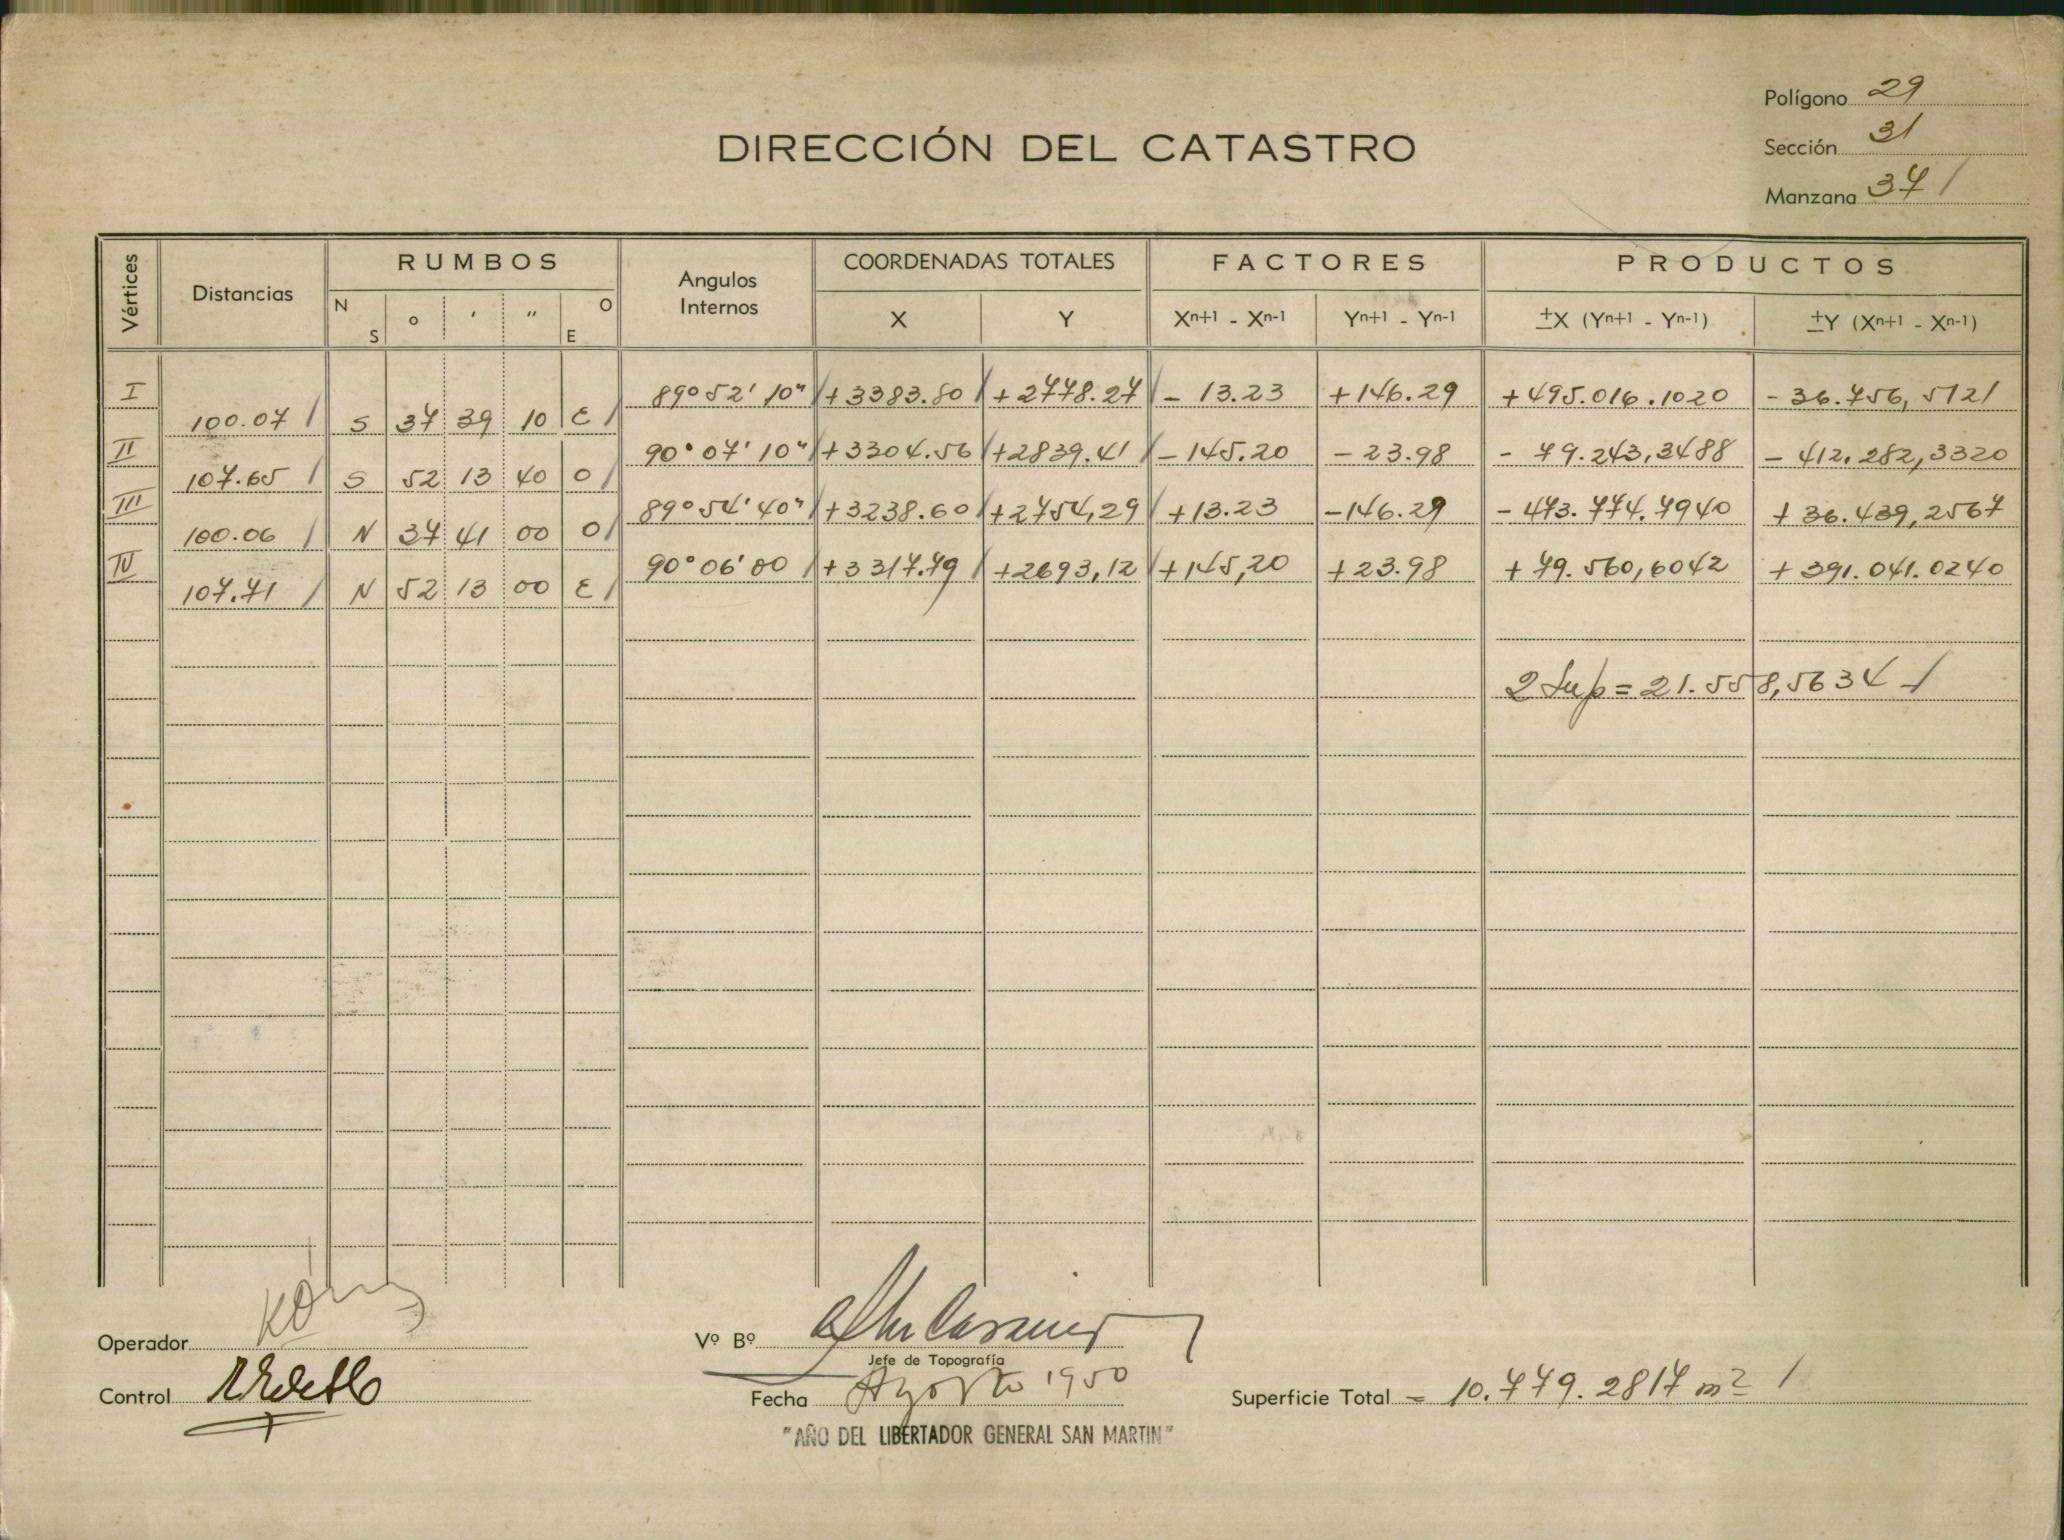 Polígono 29
DIRECCIÓN DEL CATASTRO
Sección 31
Manzana 37 /
Vértices Distancias RUMBOS Angulos Internos COORDENADAS TOTALES FACTORES PRODUCTOS
N S o ' " O E X Y Xn+1 - Xn-1 Yn+1 - Yn-1 ±X (Yn+1 - Yn-1) ±Y (Xn+1 - Xn-1)
I 89° 52' 10" / +3383.80 / +2778.27 / - 13.23 +146.29 +495.016.1020 - 36.756,5121
100.07 / S 37 39 10 E /
II 90° 07' 10" / +3304.56 / +2839.41 / -145.20 -23.98 - 79.243,3488 - 412.282,3320
107.65 / S 52 13 40 O /
III 89° 54' 40" / +3238.60 / +2754,29 / +13.23 -146.29 - 473.774.7940 + 36.439,2567
100.06 / N 37 41 00 O /
IV 90° 06' 00 / +3317.79 / +2693,12 / +145,20 +23.98 + 79.560,6042 + 391.041.0240
107.71 / N 52 13 00 E /
2 Sup = 21.558,5634 /
Operador
Vº Bº
Jefe de Topografía
Control
Fecha Agosto 1950
Superficie Total = 10.779.2817 m² /
"AÑO DEL LIBERTADOR GENERAL SAN MARTIN"